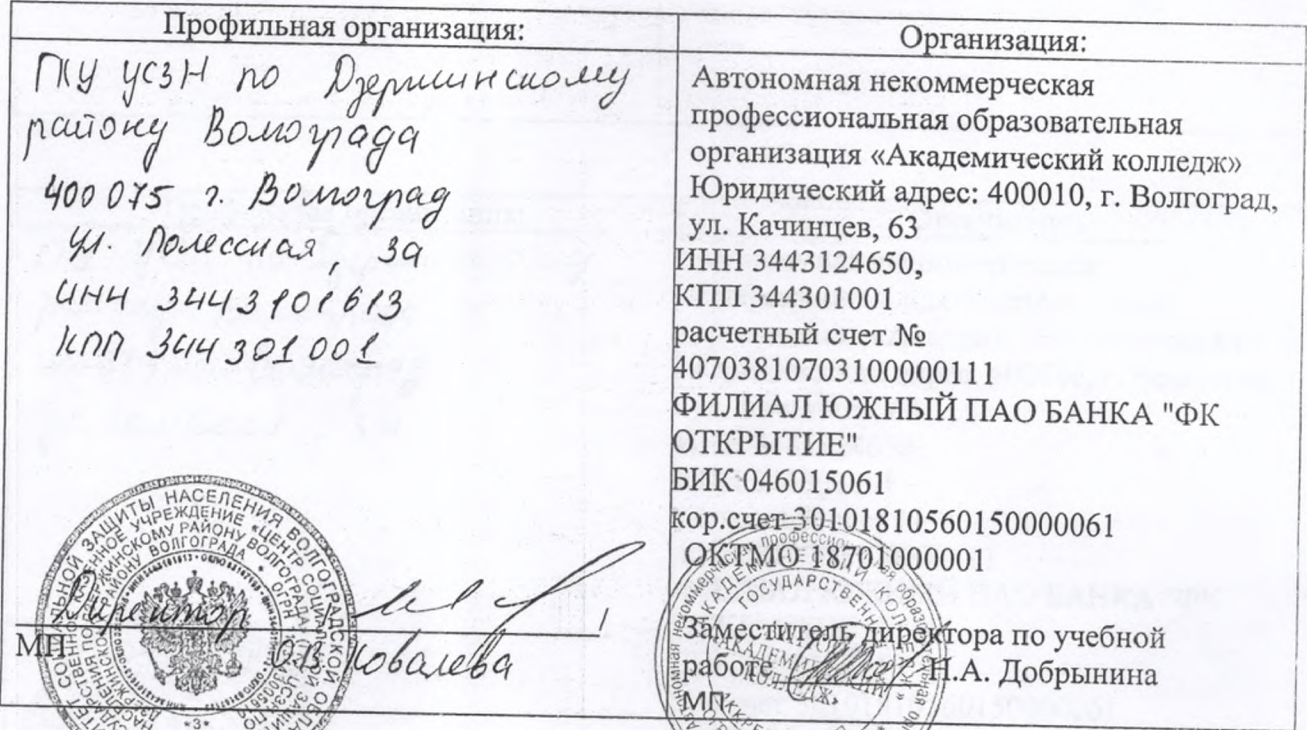 Профильная организация:
ГКУ УСЗН по Дзержинскому
району Волгограда
400075 г. Волгоград
ул. Полесская, 3а
ИНН 3443101613
КПП 344301001
Директор
МП
О.В. Ковалева
Организация:
Автономная некоммерческая
профессиональная образовательная
организация «Академический колледж»
Юридический адрес: 400010, г. Волгоград,
ул. Качинцев, 63
ИНН 3443124650,
КПП 344301001
расчетный счет №
40703810703100000111
ФИЛИАЛ ЮЖНЫЙ ПАО БАНКА "ФК
ОТКРЫТИЕ"
БИК 046015061
кор.счет 30101810560150000061
ОКТМО 18701000001
Заместитель директора по учебной
работе Н.А. Добрынина
МП